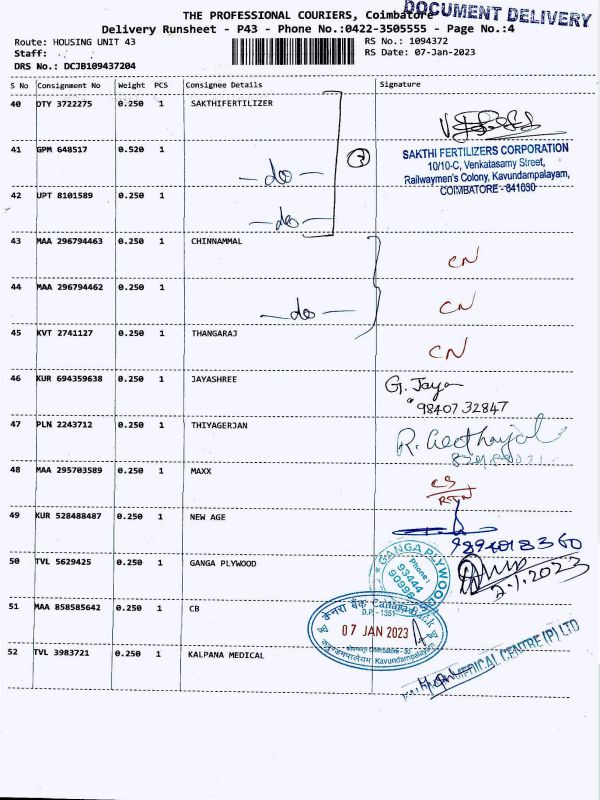 THE PROFESSIONAL COURIERS, Coimbatore
DOCUMENT DELIVERY
Delivery Runsheet - P43 - Phone No.:0422-3505555 - Page No.:4
Route: HOUSING UNIT 43 RS No.: 1094372
Staff: RS Date: 07-Jan-2023
DRS No.: DCJB109437204
S No Consignment No Weight PCS Consignee Details Signature
40 OTY 3722275 0.250 1 SAKTHIFERTILIZER
41 GPM 648517 0.520 1 —do— 3
SAKTHI FERTILIZERS CORPORATION
10/10-C, Venkatasamy Street,
Railwaymen's Colony, Kavundampalayam,
COIMBATORE - 641030
42 UPT 8101589 0.250 1 —do—
43 MAA 296794463 0.250 1 CHINNAMMAL CN
44 MAA 296794462 0.250 1 —do— CN
45 KVT 2741127 0.250 1 THANGARAJ CN
46 KUR 694359638 0.250 1 JAYASHREE G. Jaya
98407 32847
47 PLN 2243712 0.250 1 THIYAGERJAN R.
48 MAA 295703589 0.250 1 MAXX
49 KUR 528488487 0.250 1 NEW AGE
9894018360
50 TVL 5629425 0.250 1 GANGA PLYWOOD
GANGA PLYWOOD
Phone:
93444
90998
2.1.2023
51 MAA 858585642 0.250 1 CB
केनरा बैंक Canara Bank
D.P. - 1351
07 JAN 2023
Kavundampalayam
52 TVL 3983721 0.250 1 KALPANA MEDICAL
CENTRE (P) LTD